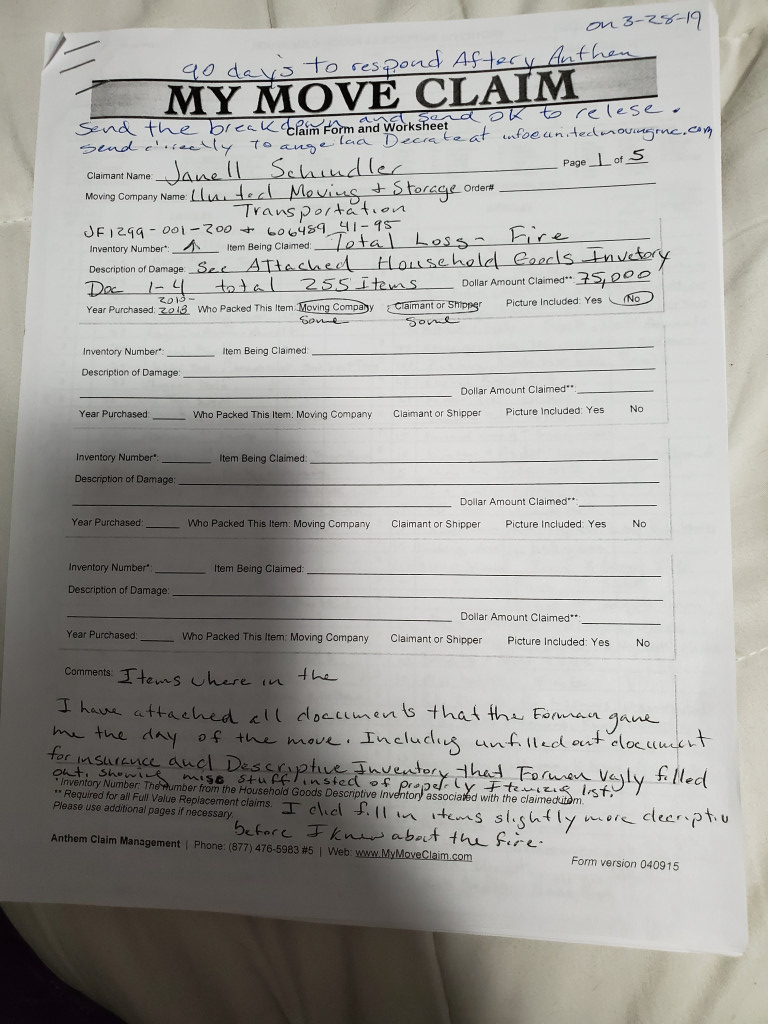 on 3-28-19
90 days to respond After Anthem
MY MOVE CLAIM
Send the breakdown and send ok to relese.
Claim Form and Worksheet
Send directly To angelaa Decrate at info@unitedmovinginc.com
Claimant Name: Janell Schindler Page 1 of 5
Moving Company Name: United Moving + Storage Order#
Transportation
JF1299-001-200 + 606489 41-95
Inventory Number*: Item Being Claimed: Total Loss - Fire
Description of Damage: See Attached Household Goods Invetory
Doc 1-4 total 255 Items Dollar Amount Claimed**: 75,000
2010-
Year Purchased: 2018 Who Packed This Item: Moving Company Claimant or Shipper Picture Included: Yes No
some some
Inventory Number*: Item Being Claimed:
Description of Damage:
Dollar Amount Claimed**:
Year Purchased: Who Packed This Item: Moving Company Claimant or Shipper Picture Included: Yes No
Inventory Number*: Item Being Claimed:
Description of Damage:
Dollar Amount Claimed**:
Year Purchased: Who Packed This Item: Moving Company Claimant or Shipper Picture Included: Yes No
Inventory Number*: Item Being Claimed:
Description of Damage:
Dollar Amount Claimed**:
Year Purchased: Who Packed This Item: Moving Company Claimant or Shipper Picture Included: Yes No
Comments: Items where in the
I have attached all documents that the Forman gave
me the day of the move. Including unfilled out document
for insurance and Descriptive Inventory that Formen Vagly filled
out. showing misc stuff insted of properly Itemizing list.
*Inventory Number: The number from the Household Goods Descriptive Inventory associated with the claimed item.
** Required for all Full Value Replacement claims. I did fill in items slightly more decriptiv
Please use additional pages if necessary.
before I knew about the fire.
Anthem Claim Management | Phone: (877) 476-5983 #5 | Web: www.MyMoveClaim.com
Form version 040915